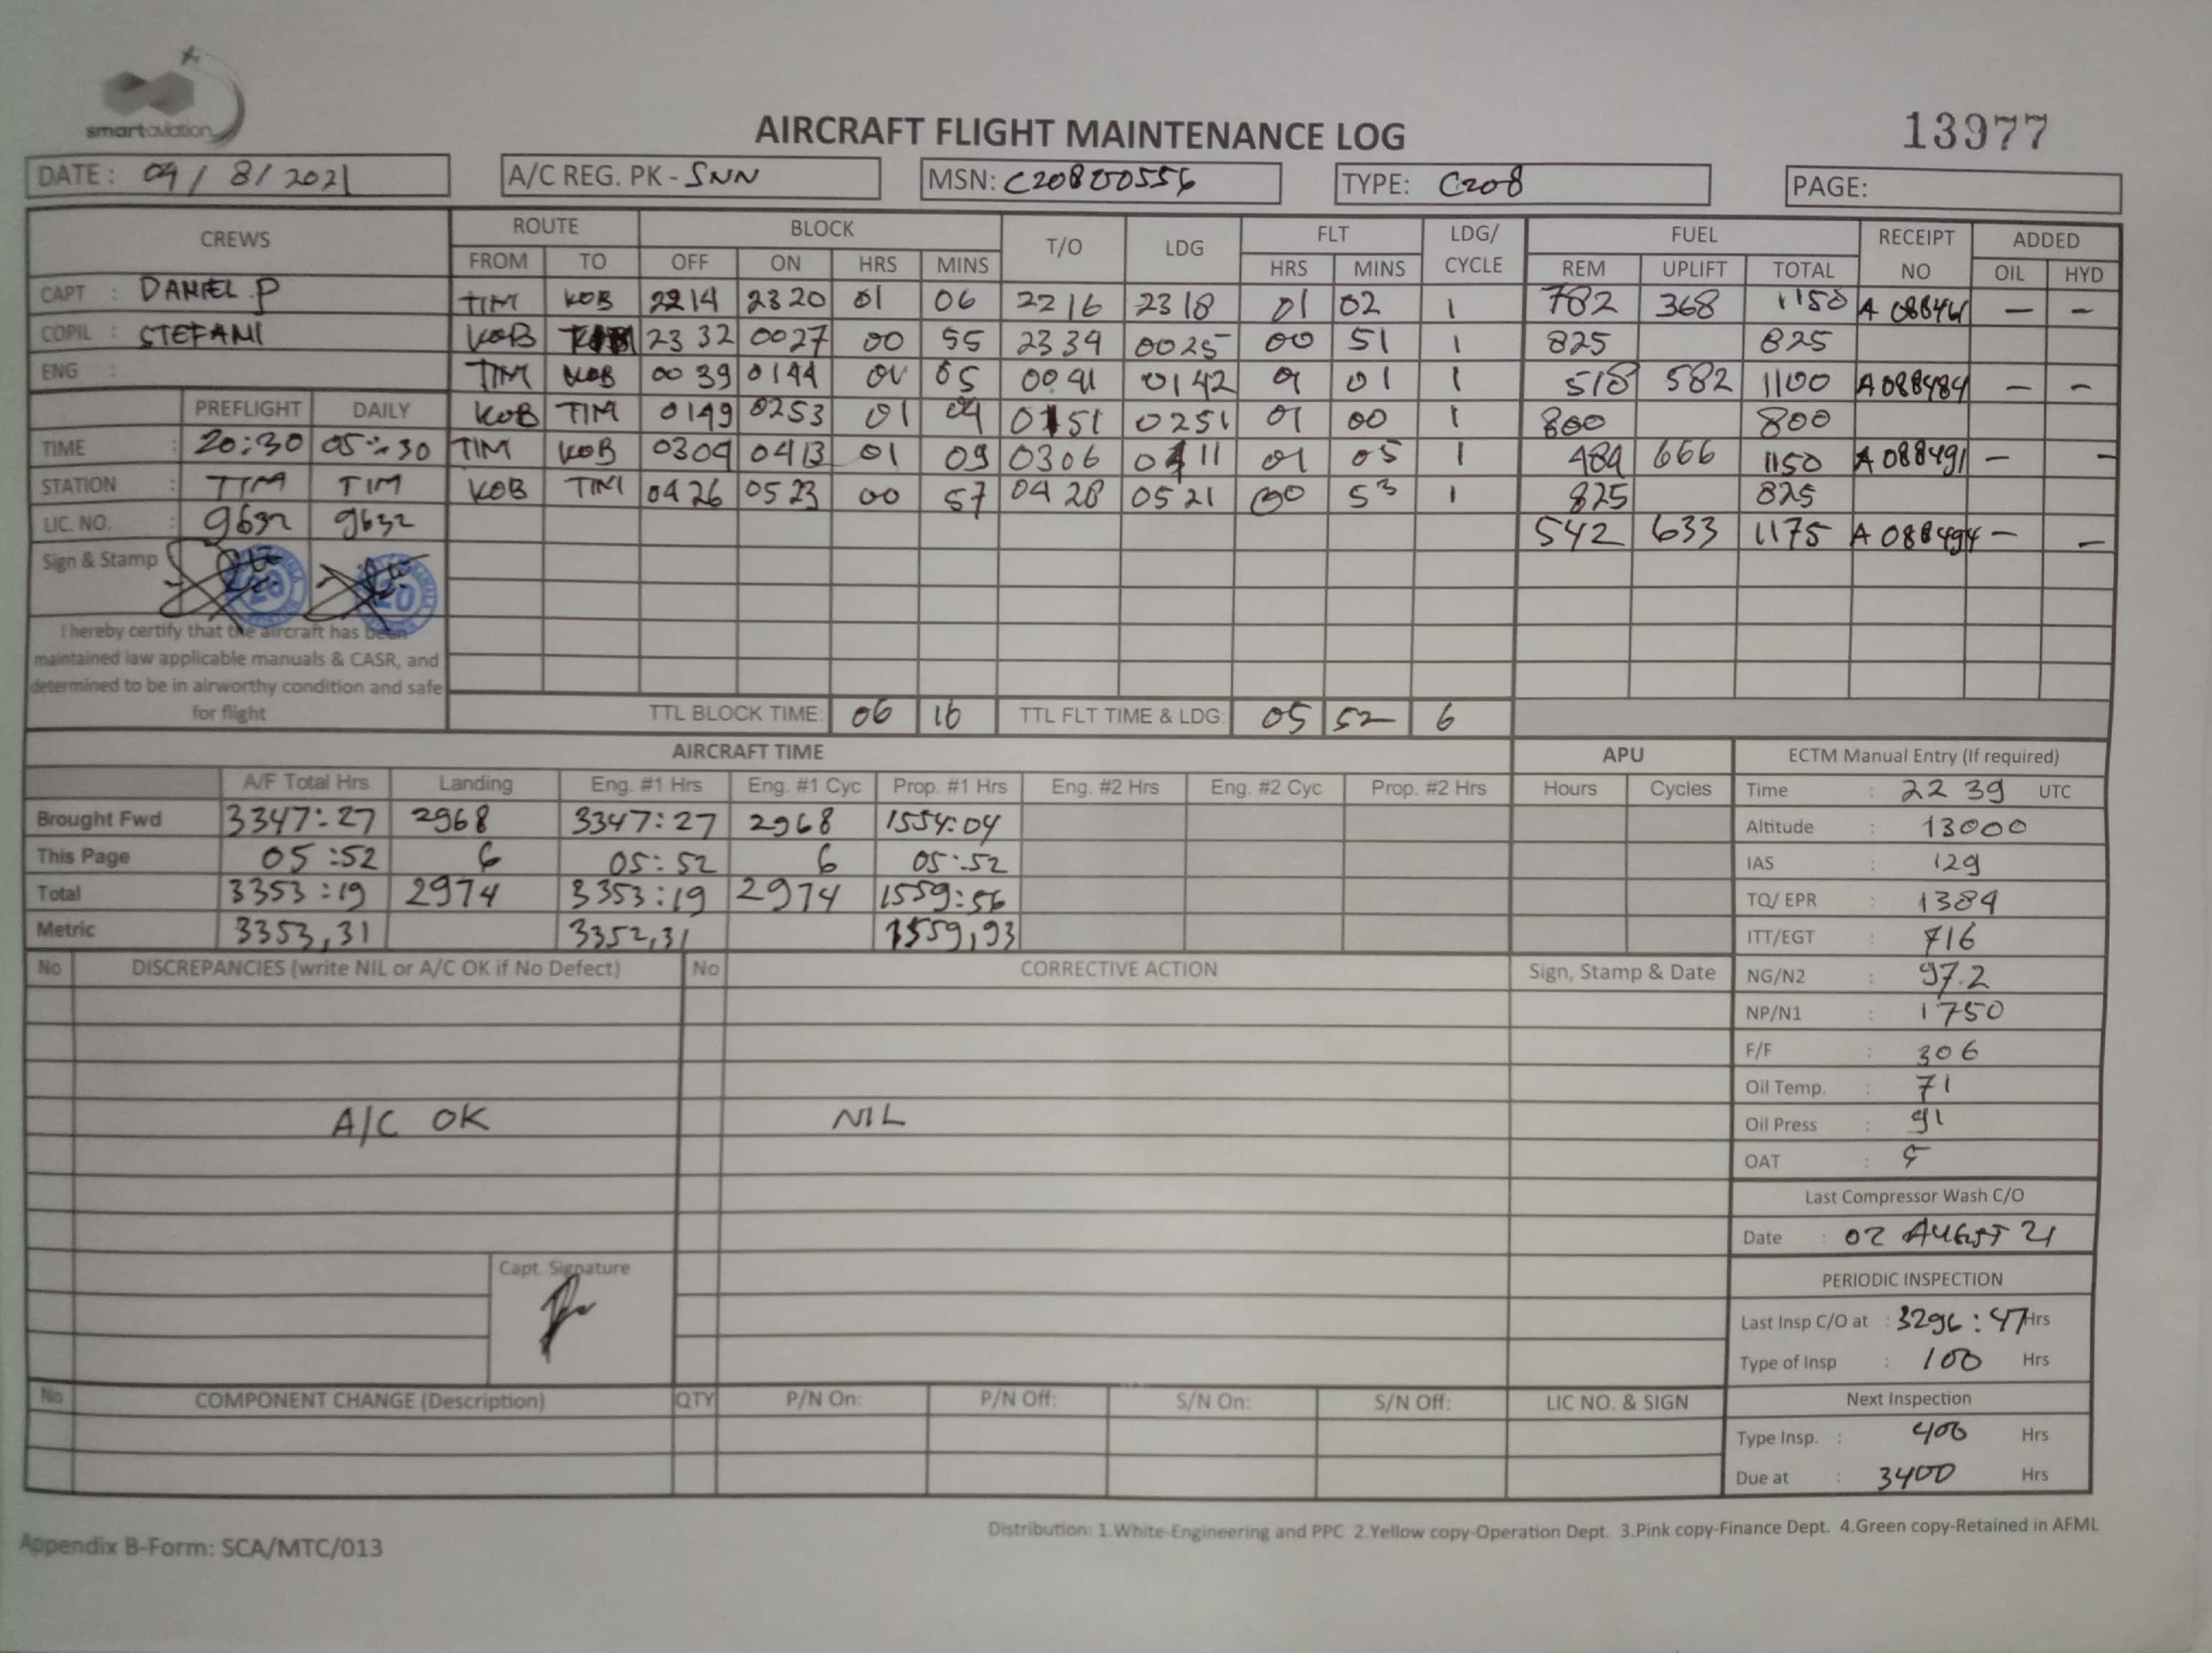 smart aviation
AIRCRAFT FLIGHT MAINTENANCE LOG
13977
DATE: 04/8/2021 A/C REG. PK - SNN MSN: C208B0556 TYPE: C208 PAGE:
CREWS ROUTE BLOCK T/O LDG FLT LDG/ CYCLE FUEL RECEIPT NO ADDED
FROM TO OFF ON HRS MINS HRS MINS REM UPLIFT TOTAL OIL HYD
CAPT : DANIEL P TIM KOB 2214 2320 01 06 2216 2318 01 02 1 782 368 1150 — —
COPIL : STEFANI KOB 2332 0027 00 55 2334 0025 00 51 1 825 825
ENG : TIM KOB 0039 0144 05 0041 0142 01 01 1 518 582 1100 A088484 — —
PREFLIGHT DAILY KOB TIM 0149 0253 01 04 0151 0251 01 00 1 800 800
TIME : 20:30 05:30 TIM KOB 0304 0413 01 09 0306 0411 01 05 1 484 666 1150 A088491 — —
STATION : TIM TIM KOB TIM 0426 0523 00 57 0428 0521 00 53 1 825 825
LIC. NO. : 9632 9632 542 633 1175 A088494 — —
Sign & Stamp
I hereby certify that the aircraft has been
maintained iaw applicable manuals & CASR, and
determined to be in airworthy condition and safe
for flight
TTL BLOCK TIME: 06 16 TTL FLT TIME & LDG: 05 52 6
AIRCRAFT TIME APU ECTM Manual Entry (If required)
A/F Total Hrs Landing Eng. #1 Hrs Eng. #1 Cyc Prop. #1 Hrs Eng. #2 Hrs Eng. #2 Cyc Prop. #2 Hrs Hours Cycles Time : 22 39 UTC
Brought Fwd 3347:27 2968 3347:27 2968 1554:04 Altitude : 13000
This Page 05:52 6 05:52 6 05:52 IAS : 129
Total 3353:19 2974 3353:19 2974 1559:56 TQ/ EPR : 1384
Metric 3353,31 3352,31 1559,93 ITT/EGT : 716
No DISCREPANCIES (write NIL or A/C OK if No Defect) No CORRECTIVE ACTION Sign, Stamp & Date NG/N2 : 97.2
NP/N1 : 1750
F/F : 306
Oil Temp. : 71
A/C OK NIL Oil Press : 91
OAT :
Last Compressor Wash C/O
Date : 02 AUGUST 21
Capt. Signature
PERIODIC INSPECTION
Last Insp C/O at : 3296:47 Hrs
Type of Insp : 100 Hrs
No COMPONENT CHANGE (Description) QTY P/N On: P/N Off: S/N On: S/N Off: LIC NO. & SIGN Next Inspection
Type Insp. : 400 Hrs
Due at : 3400 Hrs
Appendix B-Form: SCA/MTC/013
Distribution: 1.White-Engineering and PPC 2.Yellow copy-Operation Dept. 3.Pink copy-Finance Dept. 4.Green copy-Retained in AFML